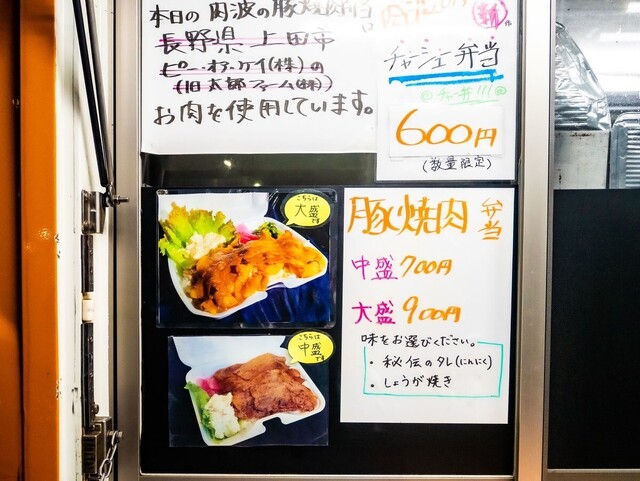 本日の肉波の豚焼肉弁当
長野県上田市
ピー・オー・ケイ(株)の
(旧太郎ファーム(株))
お肉を使用しています。
チャーシュー弁当
600円
(数量限定)
こちらは
大盛
です
豚焼肉弁当
中盛700円
大盛900円
味をお選びください。
・秘伝のタレ(にんにく)
・しょうが焼き
こちらは
中盛
です